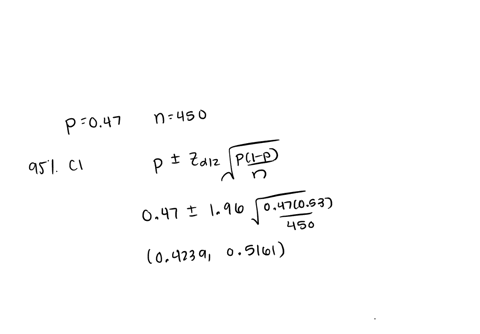 p=0.47 n=450
95% CI p ± Zα/2 √(p(1-p)/n)
0.47 ± 1.96 √(0.47(0.53)/450)
(0.4239, 0.5161)